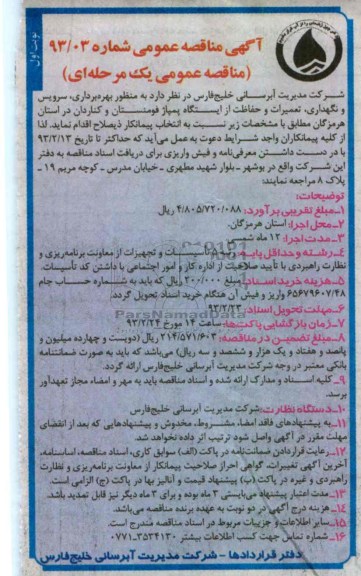 نوبت اول
آگهی مناقصه عمومی شماره ۹۳/۰۳
(مناقصه عمومی یک مرحله‌ای)
شرکت مدیریت آبرسانی خلیج‌فارس در نظر دارد به منظور بهره‌برداری، سرویس
و نگهداری، تعمیرات و حفاظت از ایستگاه پمپاژ فومنستان و کناردان در استان
هرمزگان مطابق با مشخصات زیر نسبت به انتخاب پیمانکار ذیصلاح اقدام نماید. لذا
از کلیه پیمانکاران واجد شرایط دعوت به عمل می‌آید که حداکثر تا تاریخ ۹۳/۲/۱۳
با در دست داشتن معرفی‌نامه و فیش واریزی برای دریافت اسناد مناقصه به دفتر
این شرکت واقع در بوشهر - بلوار شهید مطهری - خیابان مدرس - کوچه مریم ۱۹ -
پلاک ۸ مراجعه نمایند:
توضیحات:
۱-مبلغ تقریبی برآورد: ۴/۸۰۵/۷۲۰/۰۸۸ ریال
۲-محل اجرا: استان هرمزگان.
۳-مدت اجرا: ۱۲ ماه شمسی
۴-رشته و حداقل پایه: رتبه ۵ تاسیسات و تجهیزات از معاونت برنامه‌ریزی و
نظارت راهبردی یا تأیید صلاحیت از اداره کار و امور اجتماعی با داشتن کد تأسیسات.
۵-هزینه خرید اسناد: مبلغ ۳۰۰/۰۰۰ ریال که باید به شماره حساب جام
۶۵۶۷۹۶۰۷/۴۸ واریز و فیش آن هنگام خرید اسناد تحویل گردد.
۶-مهلت تحویل اسناد: ۹۳/۲/۲۳
۷-زمان بازگشایی پاکت‌ها: ساعت ۱۴ مورخ ۹۳/۲/۲۴
۸-مبلغ تضمین در مناقصه: ۲۱۴/۵۷۱/۶۰۳ ریال (دویست و چهارده میلیون و
پانصد و هفتاد و یک هزار و ششصد و سه ریال) می‌باشد که باید به صورت ضمانتنامه
بانکی معتبر در وجه شرکت مدیریت آبرسانی خلیج‌فارس ارائه گردد.
۹-کلیه اسناد و مدارک ارائه شده و اسناد مناقصه باید به مهر و امضاء مجاز تعهدآور
برسد.
۱۰-دستگاه نظارت: شرکت مدیریت آبرسانی خلیج‌فارس
۱۱-به پیشنهادهای فاقد امضا، مشروط، مخدوش و پیشنهادهایی که بعد از انقضای
مهلت مقرر در آگهی واصل شود ترتیب اثر داده نخواهد شد.
۱۲-رعایت قراردادن ضمانت‌نامه در پاکت (الف) سوابق کاری، اسناد مناقصه، اساسنامه،
آخرین آگهی تغییرات، گواهی احراز صلاحیت پیمانکار از معاونت برنامه‌ریزی و نظارت
راهبردی و غیره در پاکت (ب) پیشنهاد قیمت و آنالیز بها در پاکت (ج) الزامی است.
۱۳-مدت اعتبار پیشنهاد می‌بایستی ۳ ماه بوده و برای ۳ ماه دیگر نیز قابل تمدید باشد.
۱۴-هزینه درج آگهی در دو نوبت به عهده برنده مناقصه می‌باشد.
۱۵-سایر اطلاعات و جزییات مربوط در اسناد مناقصه مندرج است.
۱۶-شماره تماس جهت کسب اطلاعات بیشتر ۳۵۳۴۱۳۰-۰۷۷۱
دفتر قراردادها - شرکت مدیریت آبرسانی خلیج‌فارس
ParsNamadData